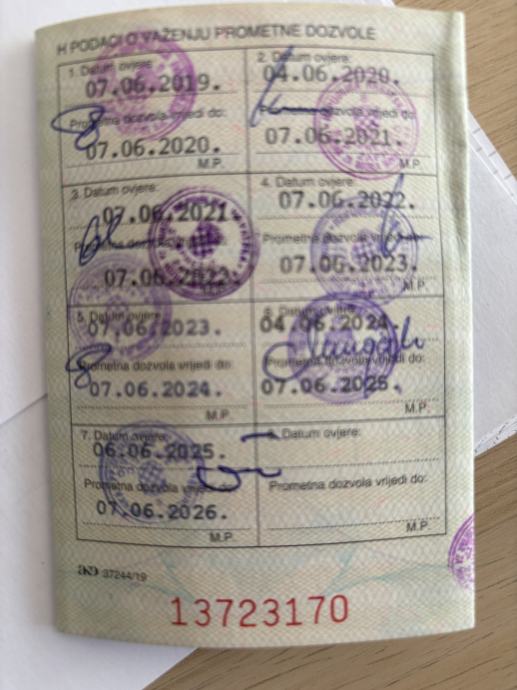 H PODACI O VAŽENJU PROMETNE DOZVOLE
1. Datum ovjere:
07.06.2019.
Prometna dozvola vrijedi do:
07.06.2020.
M.P.
2. Datum ovjere:
04.06.2020.
Prometna dozvola vrijedi do:
07.06.2021.
M.P.
3. Datum ovjere:
07.06.2021.
07.06.
M.P.
4. Datum ovjere:
07.06.2022.
Prometna dozvola vrijedi do:
07.06.2023.
M.P.
5. Datum ovjere:
07.06.2023.
Prometna dozvola vrijedi do:
07.06.2024.
M.P.
6. Datum ovjere:
04.06.2024.
Prometna dozvola vrijedi do:
07.06.2025.
M.P.
7. Datum ovjere:
06.06.2025.
Prometna dozvola vrijedi do:
07.06.2026.
M.P.
8. Datum ovjere:
Prometna dozvola vrijedi do:
M.P.
37244/19
13723170